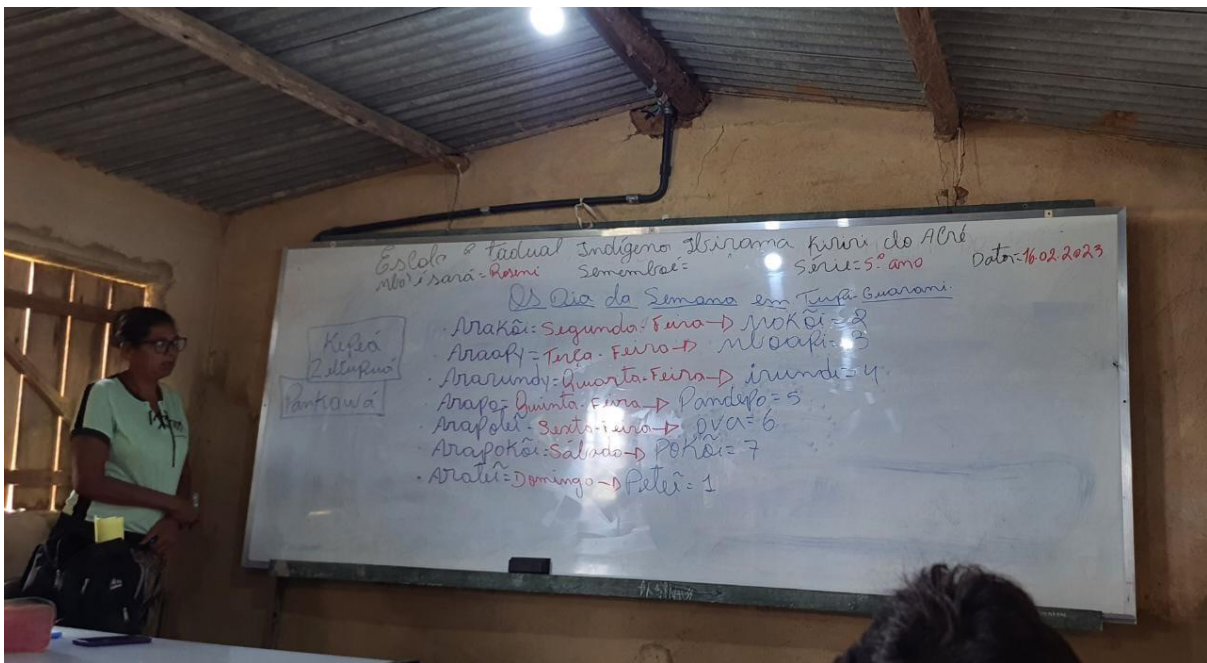 Escola Estadual Indígena Ibirama Kiriri do Acré
mbo'esará = Roseni Sememboé = Série = 5º ano Data = 16.02.2023
Os Dia da Semana em Tupi-Guarani.
· Arakõi = Segunda-Feira → Mokõi = 2
· Araapy = Terça-Feira → mboapi = 3
· Ararundy = Quarta-Feira → irundi = 4
· Arapo = Quinta-Feira → Pandepo = 5
· Arapoteĩ = Sexta-Feira → ova = 6
· Arapokõi = Sábado → Pokõi = 7
· Arateĩ = Domingo → Peteĩ = 1
Kipeá